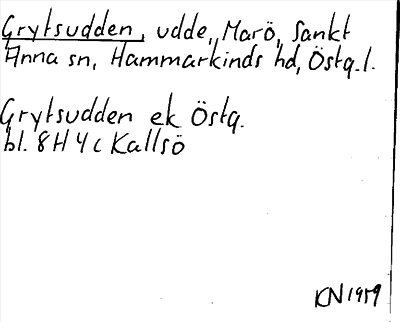 Grytsudden, udde, Marö, Sankt
Anna sn, Hammarkinds hd, Östg.l.
Grytsudden ek Östg.
bl. 8H 4c Kallsö
KN 1959